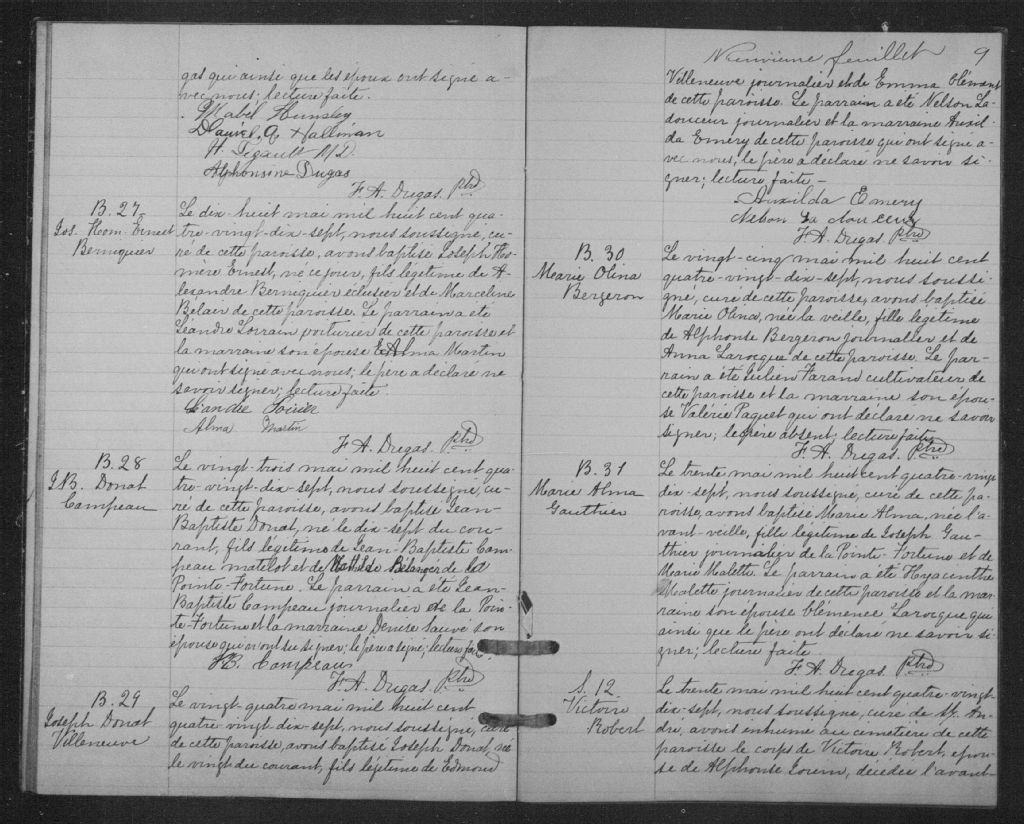 gas qui ainsi que les époux ont signé a-
vec nous. lecture faite.
Mabel Hunsley
Daniel A Hallinan
H. Legault M.D.
Alphonsine Dugas
F. A. Dugas Ptre
B. 27
Jos. Hom. Ernest
Berniquier
Le dix huit mai mil huit cent qua-
tre-vingt-dix-sept, nous soussigné, cu-
ré de cette paroisse, avons baptisé Joseph Ho-
mère Ernest, né ce jour, fils légitime de A-
lexandre Berniquier éclusier et de Marceline
Bélair de cette paroisse. Le parrain a été
Léandre Lorrain voiturier de cette paroisse et
la marraine son épouse Alma Martin
qui ont signé avec nous; le père a déclaré ne
savoir signer; lecture faite.
Alma Martin
F. A. Dugas. Ptre
B. 28
J. B. Donat
Campeau
Le vingt-trois mai mil huit cent qua-
tre-vingt-dix-sept, nous soussigné, cu-
ré de cette paroisse, avons baptisé Jean-
Baptiste Donat, né le dix-sept du cou-
rant, fils légitime de Jean-Baptiste Cam-
peau matelot et de Mathilde Bélanger de la
Pointe-Fortune. Le parrain a été Jean-
Baptiste Campeau journalier de la Poin-
te-Fortune et la marraine Denise Sauvé son
épouse qui n'ont su signer; le père a signé; lecture faite
J.B. Campeau
F. A. Dugas. Ptre
B. 29
Joseph Donat
Villeneuve
Le vingt-quatre mai mil huit cent
quatre-vingt-dix-sept, nous soussigné, curé
de cette paroisse, avons baptisé Joseph Donat, né
le vingt du courant, fils légitime de Edmond
Neuvième feuillet 9
Villeneuve journalier et de Emma Clément
de cette paroisse. Le parrain a été Nelson La-
douceur journalier et la marraine Auxil-
da Emery de cette paroisse qui ont signé a-
vec nous, le père a déclaré ne savoir si-
gner; lecture faite –
Auxilda Emery
Nelson La douceur
F. A. Dugas. Ptre
B. 30
Marie Olina
Bergeron
Le vingt-cinq mai mil huit cent
quatre-vingt-dix-sept, nous soussi-
gné, curé de cette paroisse, avons baptisé
Marie Olina, née la veille, fille légitime
de Alphonse Bergeron journalier et de
Anna Larocque de cette paroisse. Le par-
rain a été Julien Farand cultivateur de
cette paroisse et la marraine son épou-
se Valérie Paquet qui ont déclaré ne savoir
signer; le père absent; lecture faite
F. A. Dugas. Ptre
B. 31
Marie Alma
Gauthier
Le trente mai mil huit cent quatre-vingt
dix-sept, nous soussigné, curé de cette pa-
roisse, avons baptisé Marie Alma, née l'a-
vant-veille, fille légitime de Joseph Gau-
thier journalier de la Pointe-Fortune et de
Marie Malette. Le parrain a été Hyacinthe
Malette journalier de cette paroisse et la mar-
raine son épouse Clémence Larocque qui
ainsi que le père ont déclaré ne savoir si-
gner; lecture faite
F. A. Dugas. Ptre
S. 12.
Victoire
Robert
Le trente mai mil huit cent quatre-vingt-
dix-sept, nous soussigné, curé de St. An-
dré, avons inhumé au cimetière de cette
paroisse le corps de Victoire Robert, épou-
se de Alphonse Lorrin, décédée l'avant-